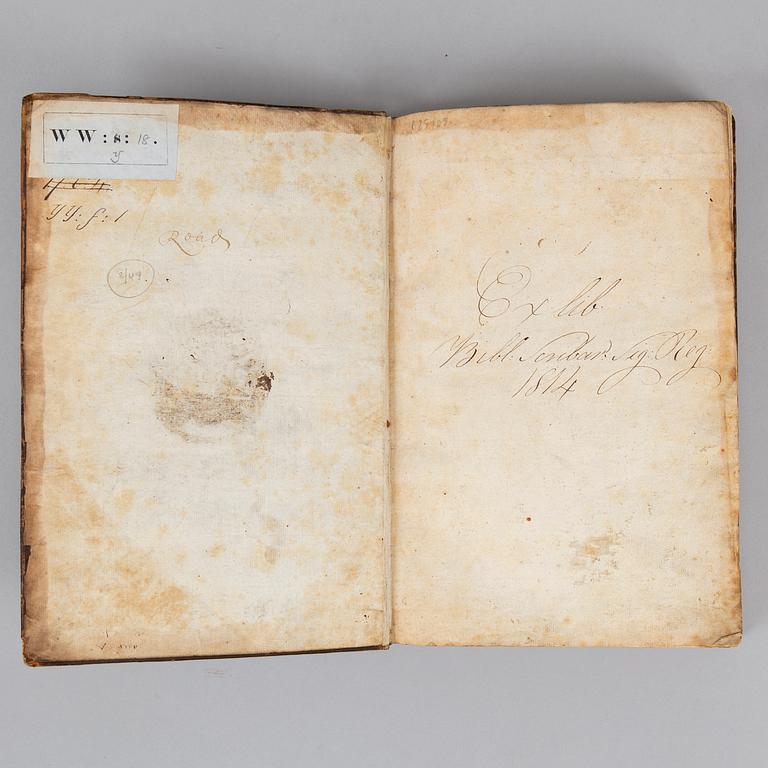 WW:s:18.
y
yy: f: 1
Road
2/49.
Ex lib.
Bibl: Scribar: Sig: Reg:
1814